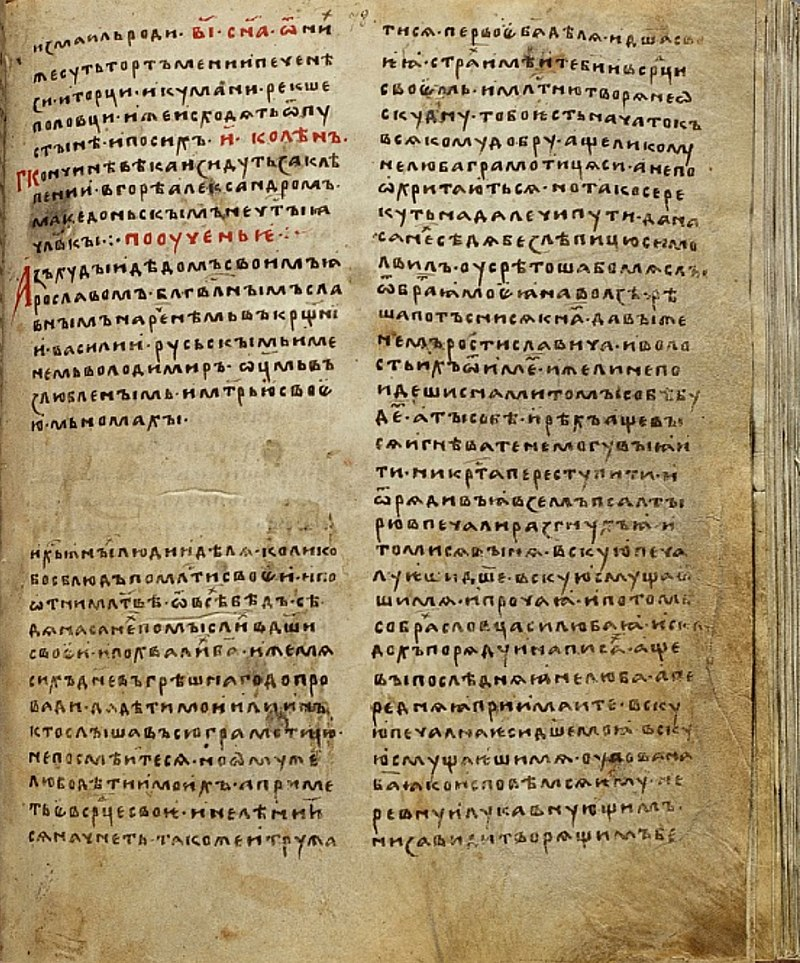 исмаильроди · в҃і · сн҃а · ѿни
же суть тортъмени и печенѣ
си · и торци · и кумани · рекше
половци · иже исходѧть ѿ пу
стынѣ · и по сихъ · и҃ · колѣнъ ·
г кончинѣ вѣка изидуть заклѣ
пении · в горѣ александромъ ·
македоньскымъ нечтыꙗ
чл҃вкы ⁘ поѹченьꙗ ⁘
Азъ худыи дѣдомъ своимъ ꙗ
рославомъ · блг҃влнымъ сла
внымъ нарѣчнмь въ крщ҃ні
и · василии · русьскымь име
немь володимиръ · ѿц҃мь въ
злюбленымь · и мт҃рью своѥ
ю · мьномахы ·
и хр҃тьꙗных людии дѣлѧ · колико
бо сблюдъ по млⷭ҇ти своѥи · и по
ѿтни млт҃вѣ · ѿ всѣх бѣдъ · сѣ
дѧ на санех помыслих в дш҃и
своѥи · и похвалих ба҃ · иже мѧ
сихъ днев грѣшнаго допро
вади · да дѣти мои или инъ
кто слышавъ сю грамотицю ·
не посмѣитесѧ · но ѡмуже
любо дѣтии моихъ · а приме
ть ѥ в срдце своѥ · и не лѣнит
сѧ начнеть · тако же и тружа
тисѧ · первоѥ ба҃ дѣлѧ и дш҃а своѥ
ꙗ · страх имѣите би҃и в срд҃ци
своѥмь · и млⷭ҇тню творѧ не ѡ
скудну · то бо ѥсть начатокъ
всѧкому добру · аще ли кому
не люба грамотицѧ си · а не по
ѡхритаютьсѧ · но тако се ре
куть на далечи пути · да на
санех сѣдѧ безлѣпицю си мо
лвилъ · оусрѣтоша бо мѧ слы
ѿ браꙗ моѥꙗ на волзѣ · рѣ
ша потъснисѧ к на · да выже
немъ ростиславича · и воло
сть ихъ ѿимем · иже ли не по
идеши с нами то мы собѣ буде
м · а ты собѣ · и рѣхъ аще вы
сѧ и гнѣваете не могу вы ꙗ и
ти · ни крт҃а переступити · и
ѿрѧдивъ ꙗ вземъ псалты
рю в печали разгнухъ ꙗ · и
то ми сѧ вынѧ · вскую печа
луѥши дш҃е · вскую смущаѥ
ши мѧ · и прочаꙗ · и потомь
собрах словца си любаꙗ · и скла
дохъ по рѧду и написах · аще
вы послѣднѧꙗ не люба · а пе
реднѧꙗ приимаите · вску
ю печална ѥси дш҃е моꙗ · вску
ю смущаѥши мѧ · оуповаи на
ба҃ ꙗко исповѣмсѧ ѥму · не
ревнуи лукавнующимъ ·
ни завиди творѧщимъ бе